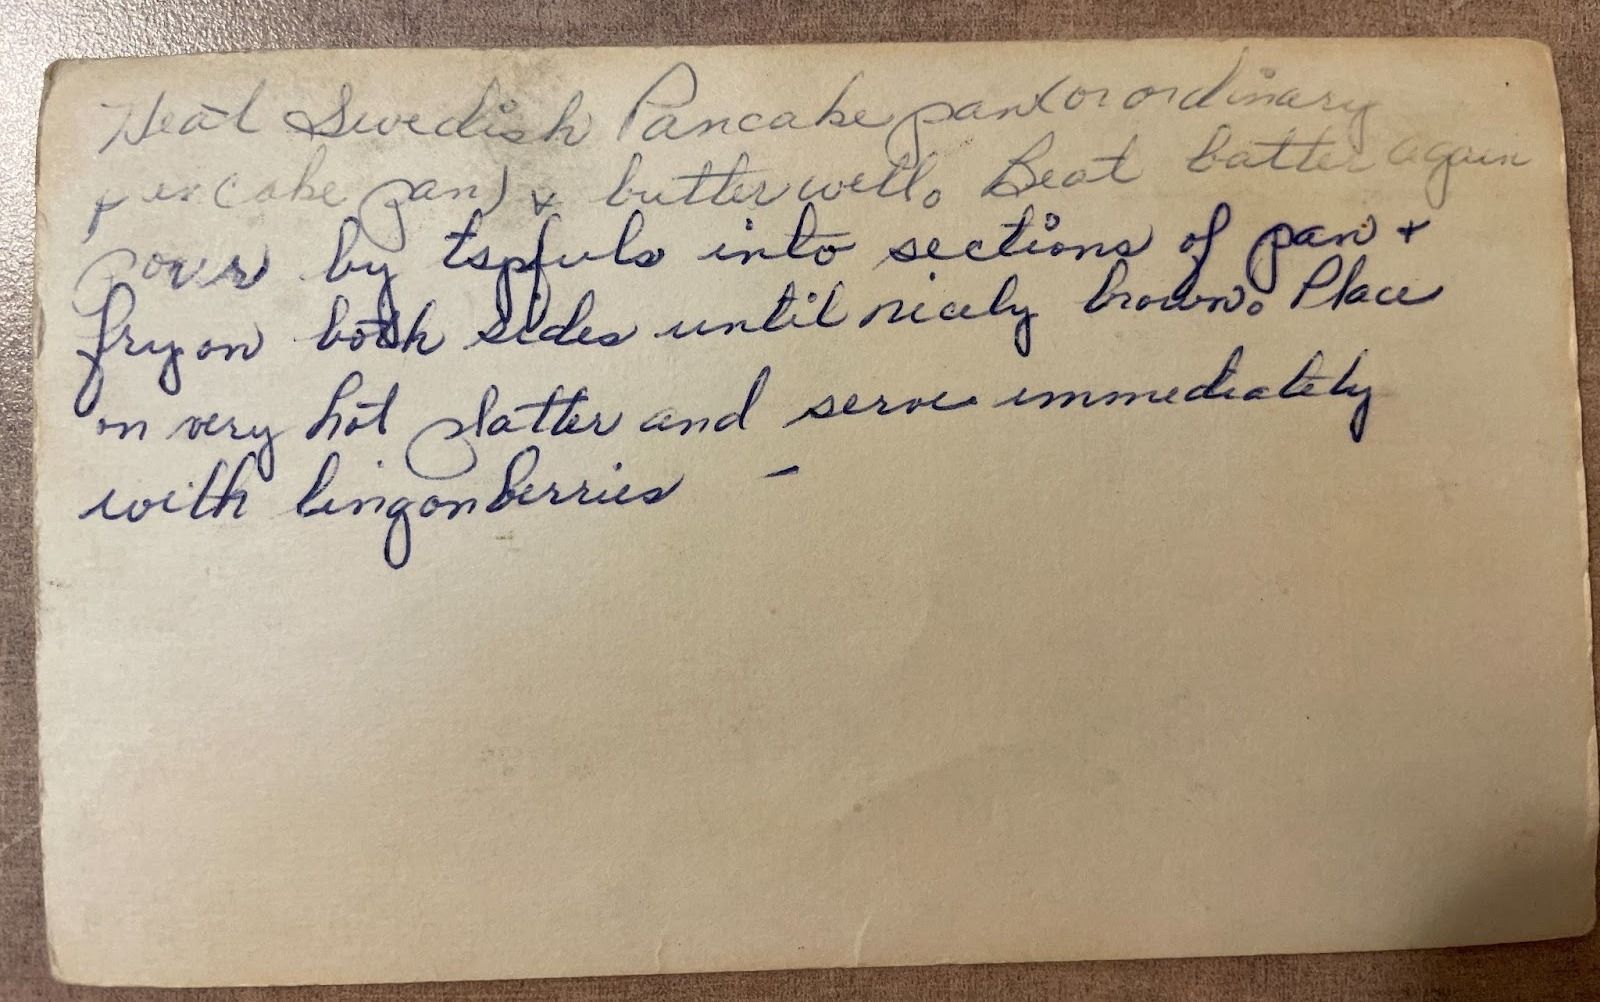 Heat Swedish Pancake pan (or ordinary
pancake pan) & butter well. Beat batter again
pour by tspfuls into sections of pan &
fry on both sides until nicely brown. Place
on very hot platter and serve immediately
with lingonberries -